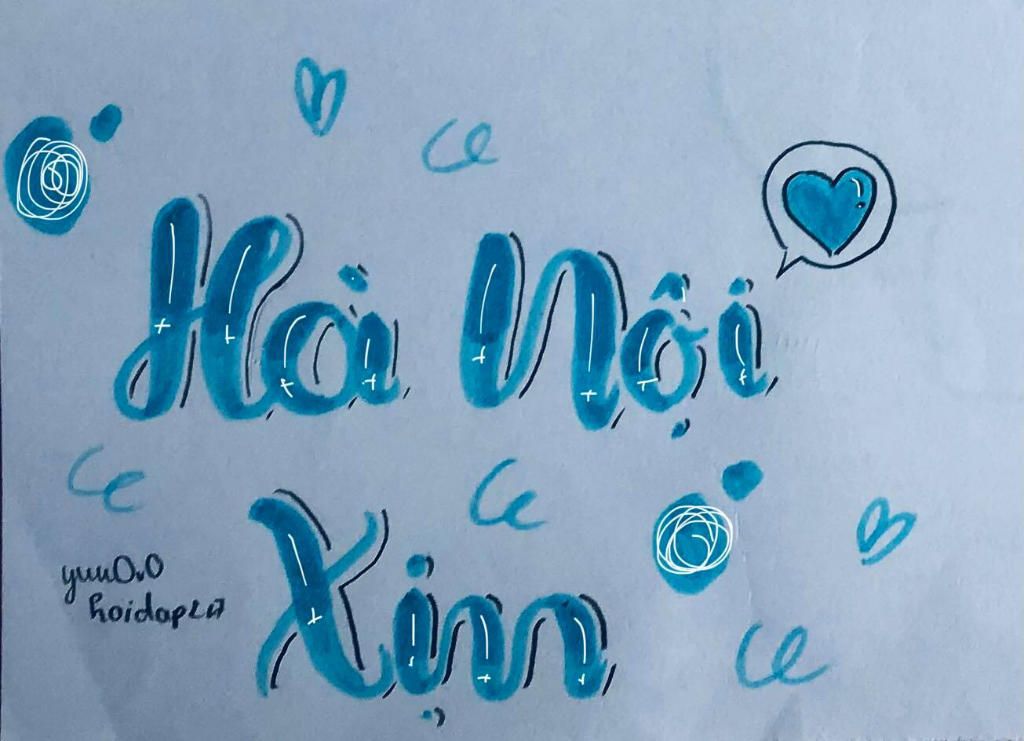 Hà Nội
Xịn
yuu0v0
hoidap247